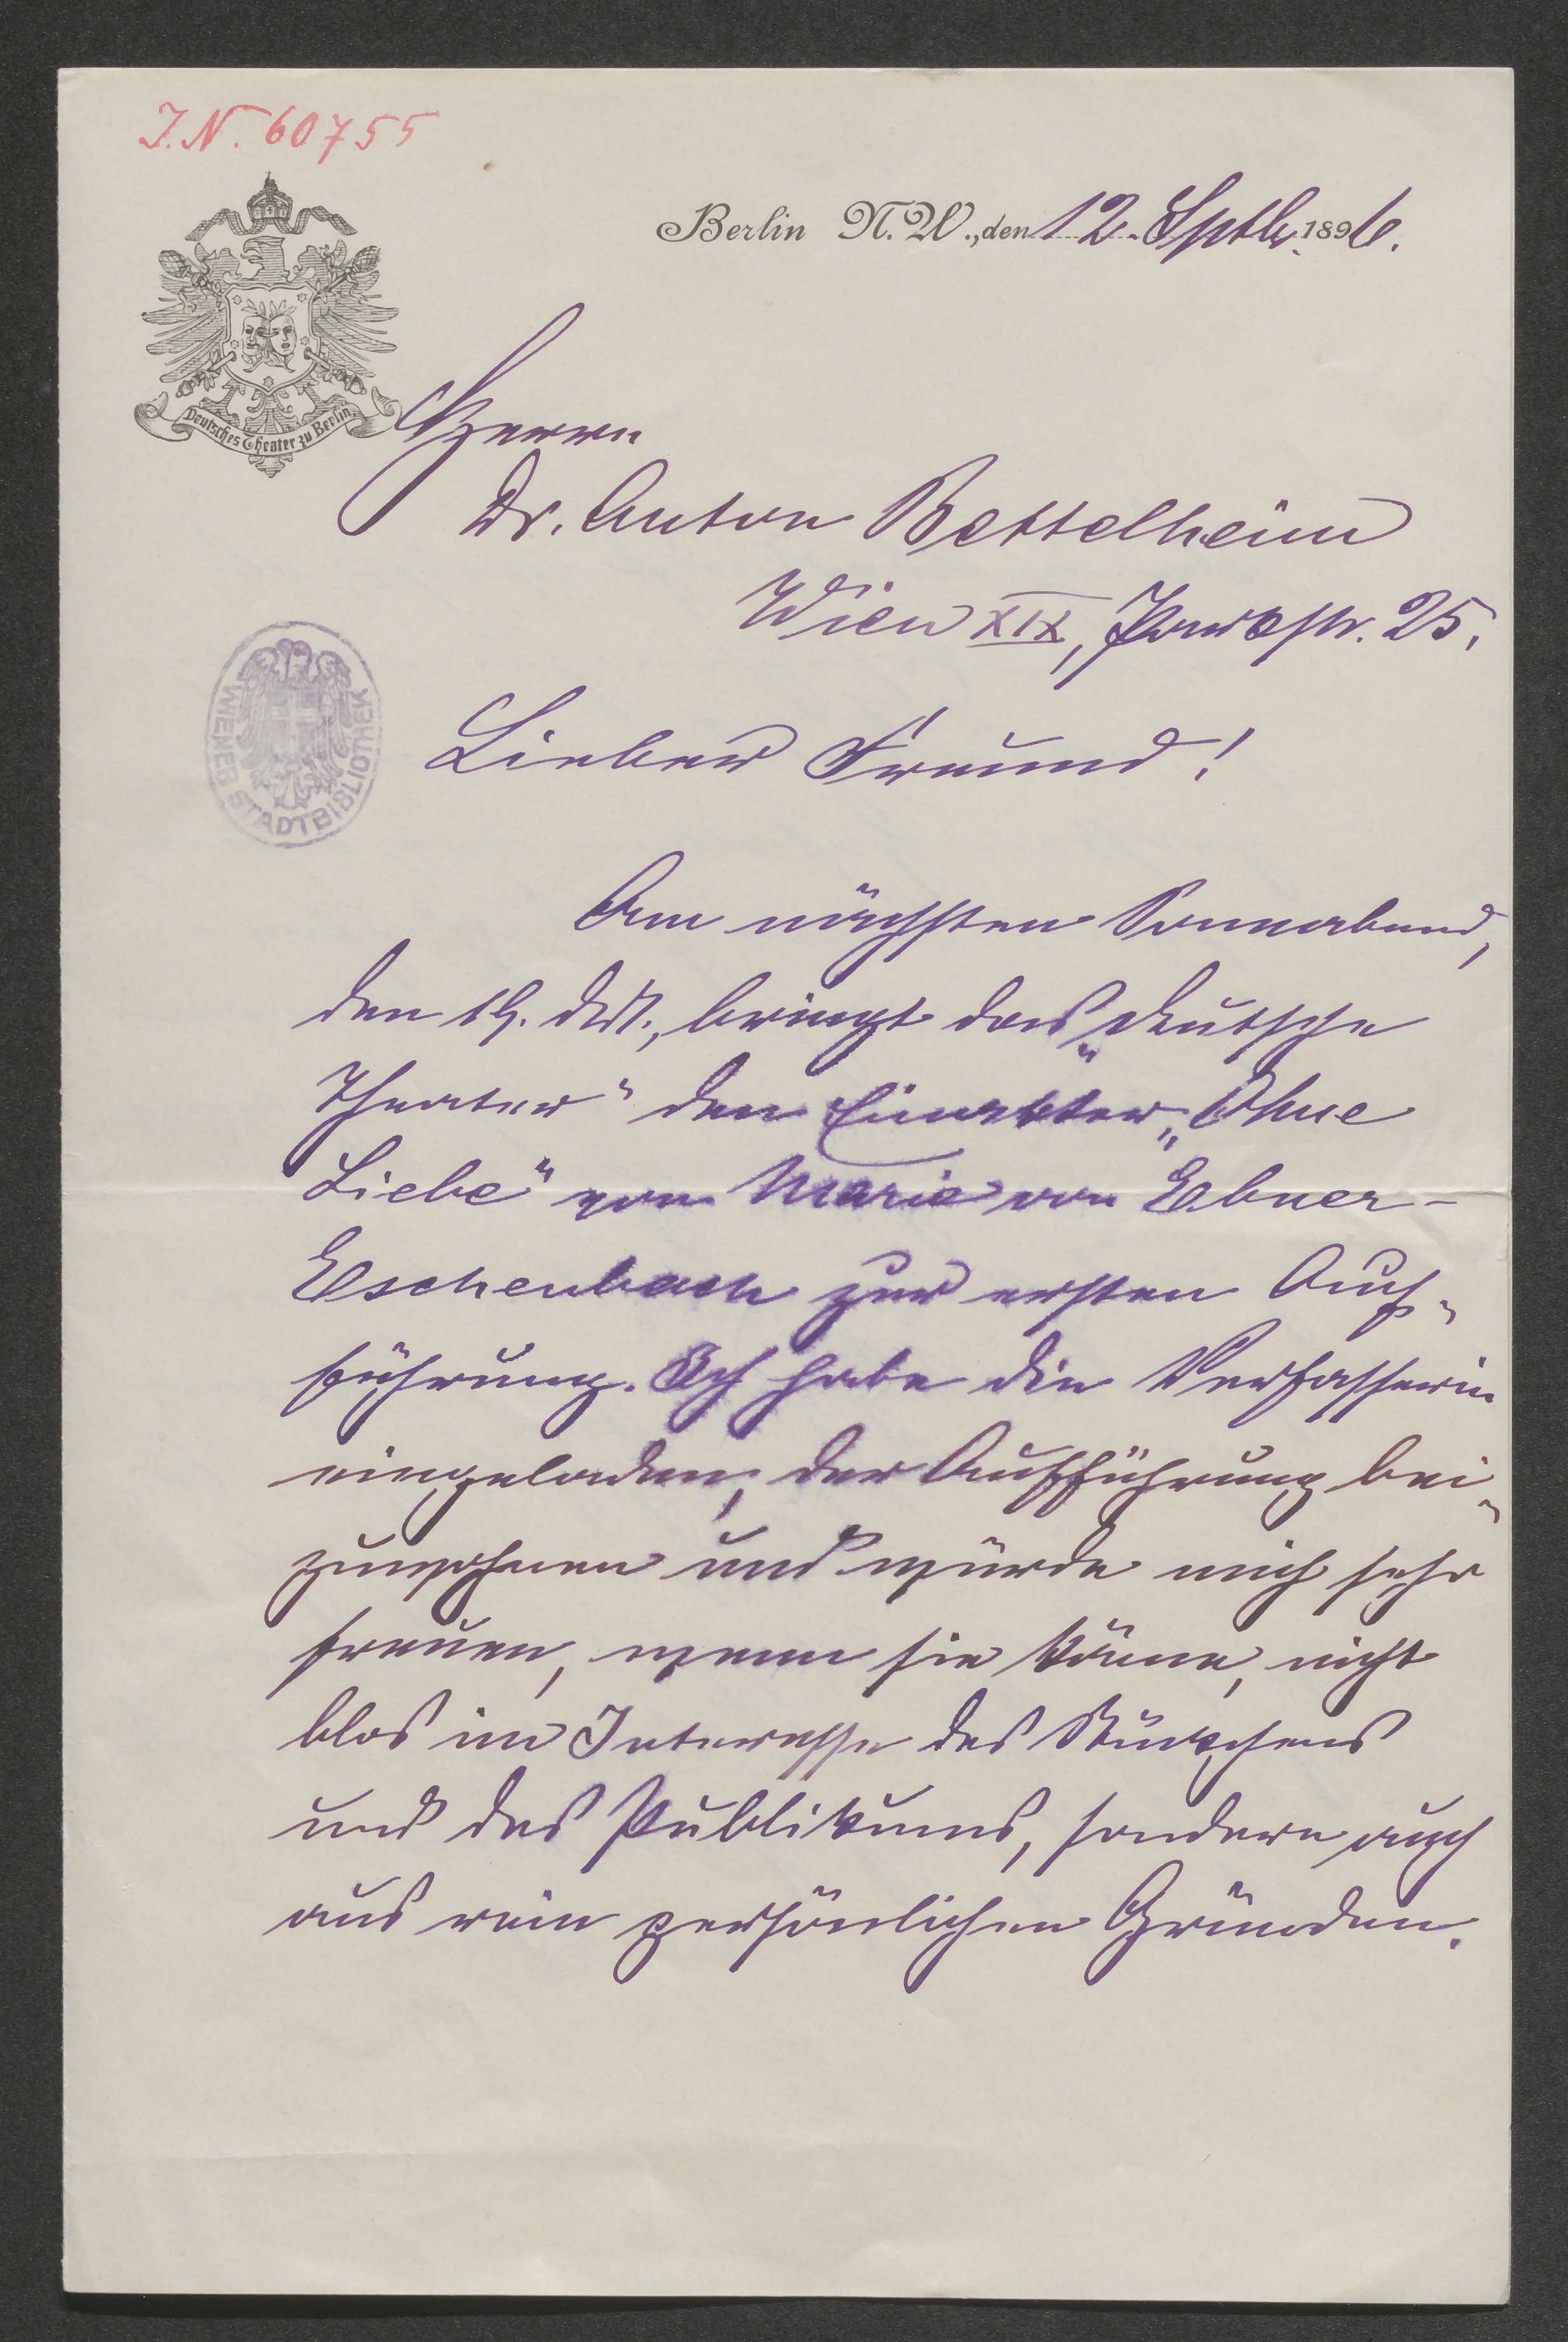 J.N. 60755
Berlin N.W., den 12. Septb. 1896.
Deutsches Theater zu Berlin.
Herrn
Dr. Anton Bettelheim
Wien XIX, 25.
WIENER STADTBIBLIOTHEK
Lieber Freund!
Am nächsten Sonnabend,
den 19. bringt das „Deutsche
Theater“ den Einakter „Ohne
Liebe“ von Marie von Ebner-
Eschenbach zur ersten Auf-
führung. Ich habe die Verfasserin
eingeladen, der Aufführung bei-
zuwohnen und würde mich sehr
freuen, wenn sie käme, nicht
blos im Interesse des Stückchens
und des Publikums, sondern auch
aus rein persönlichen Gründen.